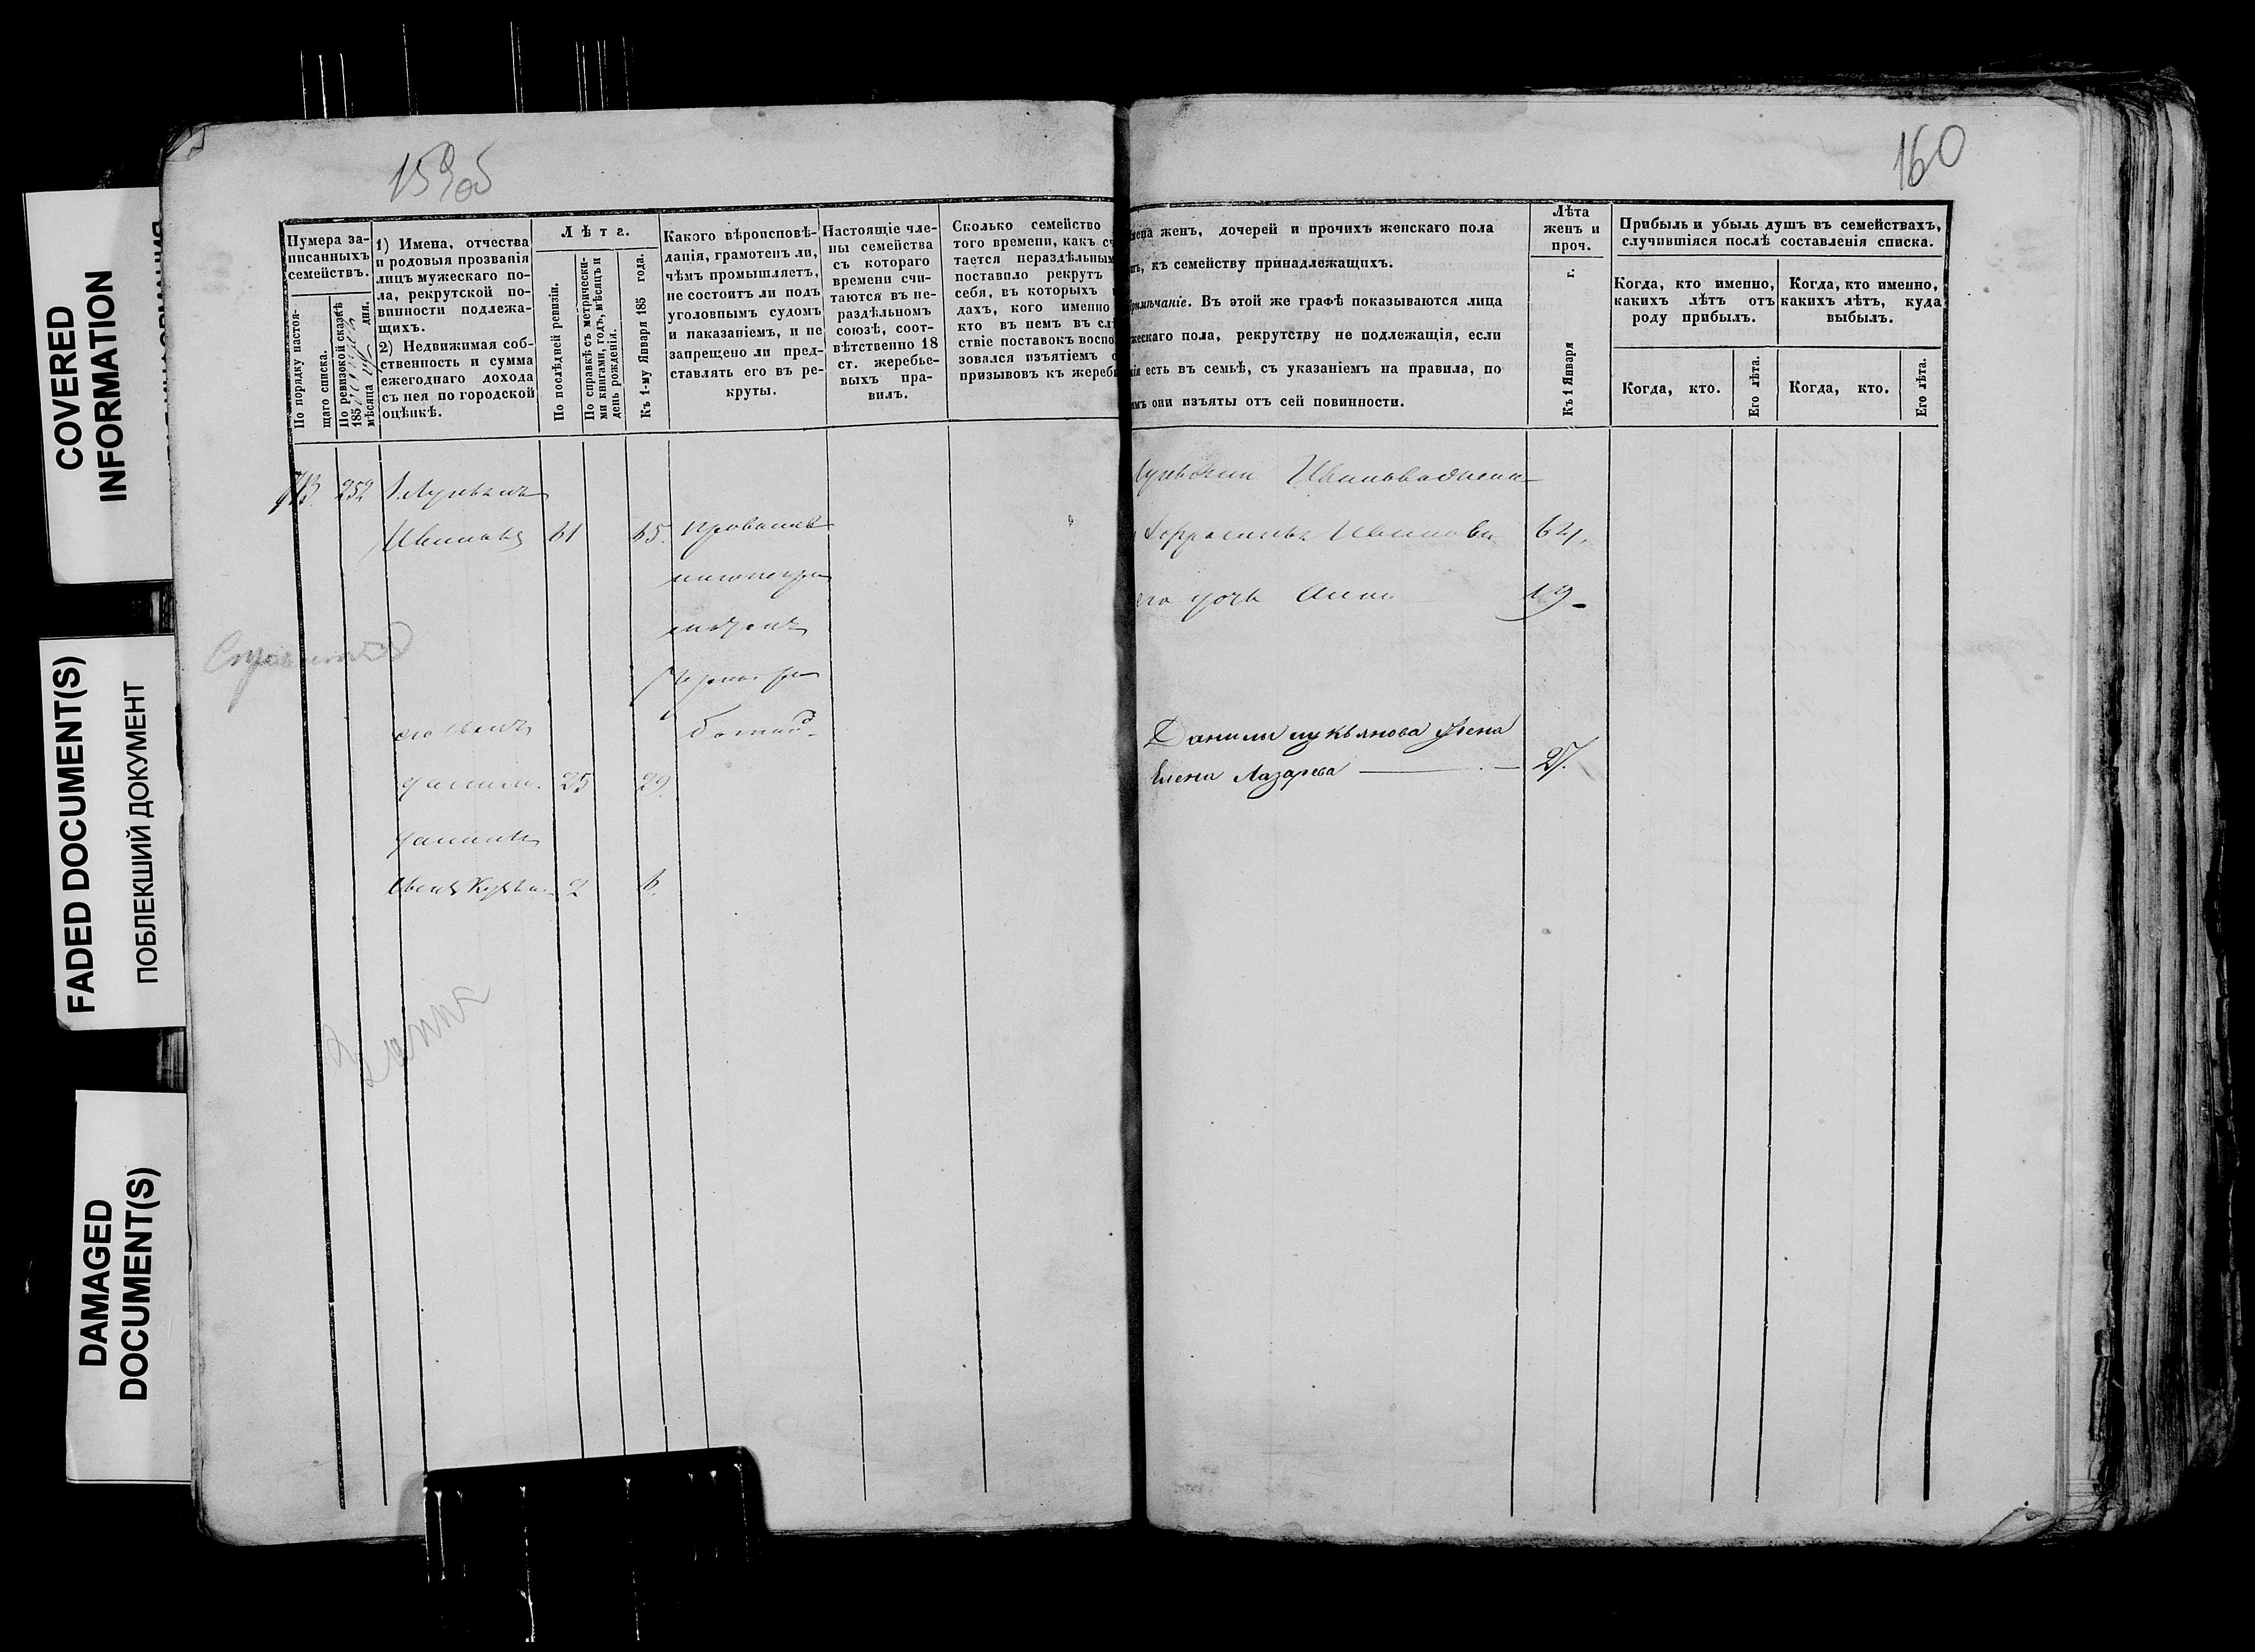 COVERED
INFORMATION
FADED DOCUMENT(S)
ПОБЛЕКШИЙ ДОКУМЕНТ
DAMAGED
DOCUMENT(S)
159об
Нумера за-
писанныхъ
семействъ.
По порядку настоя-
щаго списка.
По ревизской сказкѣ
185
мѣсяца дня.
1) Имена, отчества
и родовыя прозванія
лицъ мужескаго по-
ла, рекрутской по-
винности подлежа-
щихъ.
2) Недвижимая соб-
ственность и сумма
ежегоднаго дохода
съ нея по городской
оцѣнкѣ.
Лѣта.
По послѣдней ревизіи.
По справкѣ съ метрически-
ми книгами, годъ, мѣсяцъ и
день рожденія.
Къ 1-му Января 185 года.
Какого вѣроисповѣ-
данія, грамотенъ ли,
чѣмъ промышляетъ,
не состоитъ ли подъ
уголовнымъ судомъ
и наказаніемъ, и не
запрещено ли пред-
ставлять его въ ре-
круты.
Настоящіе чле-
ны семейства
съ котораго
времени счи-
таются въ не-
раздѣльномъ
союзѣ, соот-
вѣтственно 18
ст. жеребье-
выхъ пра-
вилъ.
Сколько семейство
того времени, какъ сч
тается нераздѣльным
поставило рекрутъ
себя, въ которыхъ
дахъ, кого именно
кто въ немъ въ слѣ
ствіе поставокъ воспо
зовался изъятіемъ о
призывовъ къ жереб
713. 252 Лукьянъ
Ивановъ 61 65.
его сынъ
Данила. 25 29.
Данилы
сынъ Кузьма 2 6.
160
мена женъ, дочерей и прочихъ женскаго пола
къ семейству принадлежащихъ.
римѣчаніе. Въ этой же графѣ показываются лица
жескаго пола, рекрутству не подлежащія, если
кія есть въ семьѣ, съ указаніемъ на правила, по
имъ они изъяты отъ сей повинности.
Лѣта
женъ и
проч.
Къ 1 Января г.
Прибыль и убыль душъ въ семействахъ,
случившіяся послѣ составленія списка.
Когда, кто именно,
какихъ лѣтъ отъ
роду прибылъ.
Когда, кто именно,
какихъ лѣтъ, куда
выбылъ.
Когда, кто.
Его лѣта.
Когда, кто.
Его лѣта.
Лукьяна Иванова жена
Ефросинья Иванова 64.
его дочь Анна 19
Данилы Лукьянова жена
Елена Лазарева 27.